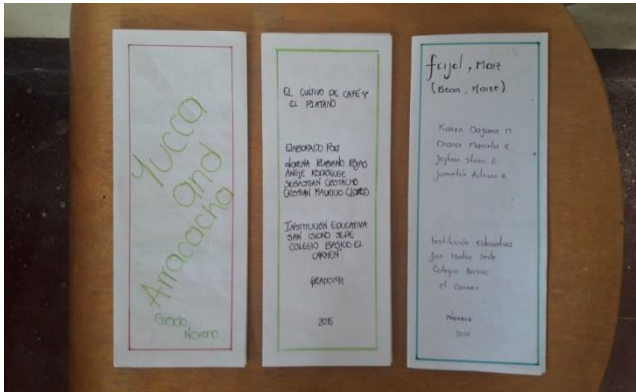 Yucca
and
Arracacha
Grado
Noveno
EL CULTIVO DE CAFÉ Y
EL PLATANO
ELABORADO POR:
LORENA RUBIANO ROJAS
ANGIE RODRIGUEZ
SEBASTIAN
CRISTIAN MAURICIO
INSTITUCIÓN EDUCATIVA
SAN ISIDRO SEDE
COLEGIO BASICO EL
CARMEN
2015
frijol, Maiz
(Bean, Maize)
Karen Dayana M
Diana Marcela R.
Adrian
Institución Educativa
San Isidro Sede
Colegio Basico
el Carmen
Noveno